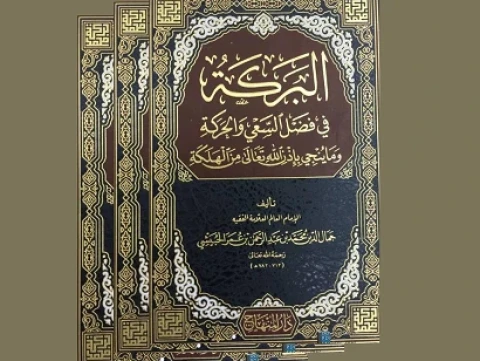 البَرَكَةُ
في فَضْلِ السَّعْيِ وَالحَرَكَةِ
وَمَا يُنْجِي بِإِذْنِ اللهِ تَعَالَى مِنَ الهَلَكَةِ
تأليف
الإمام العالم العلامة الفقيه
جمال الدين محمد بن عبد الرحمن بن عمر الحبيشي
رحمه الله تعالى
دار المنهاج